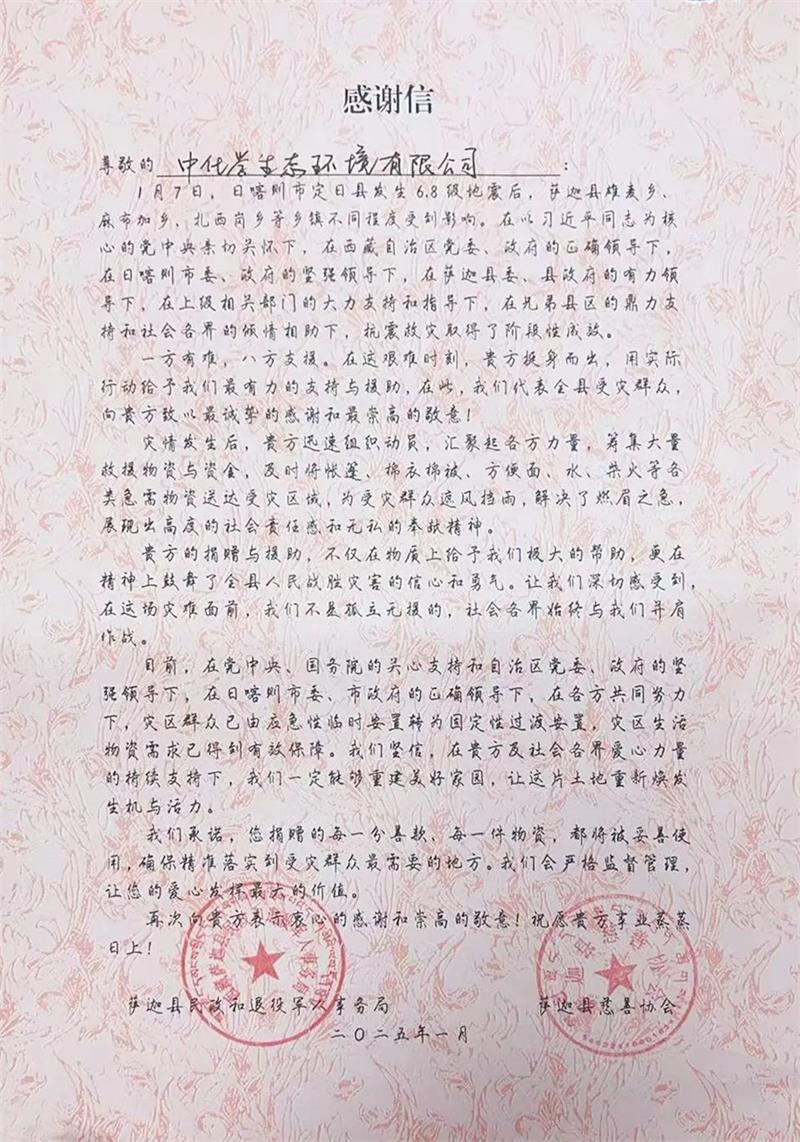 感谢信
尊敬的 中化学生态环境有限公司 ：
1月7日，日喀则市定日县发生6.8级地震后，萨迦县雄麦乡、
麻布加乡、扎西岗乡等乡镇不同程度受到影响。在以习近平同志为核
心的党中央亲切关怀下，在西藏自治区党委、政府的正确领导下，
在日喀则市委、政府的坚强领导下，在萨迦县委、县政府的有力领
导下，在上级相关部门的大力支持和指导下，在兄弟县区的鼎力支
持和社会各界的倾情相助下，抗震救灾取得了阶段性成效。
一方有难，八方支援。在这艰难时刻，贵方挺身而出，用实际
行动给予我们最有力的支持与援助，在此，我们代表全县受灾群众，
向贵方致以最诚挚的感谢和最崇高的敬意！
灾情发生后，贵方迅速组织动员，汇聚起各方力量，筹集大量
救援物资与资金，及时将帐篷、棉衣棉被、方便面、水、柴火等各
类急需物资送达受灾区域，为受灾群众遮风挡雨，解决了燃眉之急，
展现出高度的社会责任感和无私的奉献精神。
贵方的捐赠与援助，不仅在物质上给予我们极大的帮助，更在
精神上鼓舞了全县人民战胜灾害的信心和勇气。让我们深切感受到，
在这场灾难面前，我们不是孤立无援的，社会各界始终与我们并肩
作战。
目前，在党中央、国务院的关心支持和自治区党委、政府的坚
强领导下，在日喀则市委、市政府的正确领导下，在各方共同努力
下，灾区群众已由应急性临时安置转为固定性过渡安置，灾区生活
物资需求已得到有效保障。我们坚信，在贵方及社会各界爱心力量
的持续支持下，我们一定能够重建美好家园，让这片土地重新焕发
生机与活力。
我们承诺，您捐赠的每一份善款、每一件物资，都将被妥善使
用，确保精准落实到受灾群众最需要的地方。我们会严格监督管理，
让您的爱心发挥最大的价值。
再次向贵方表示衷心的感谢和崇高的敬意！祝愿贵方事业蒸蒸
日上！
萨迦县民政和退役军人事务局 萨迦县慈善协会
二〇二五年一月